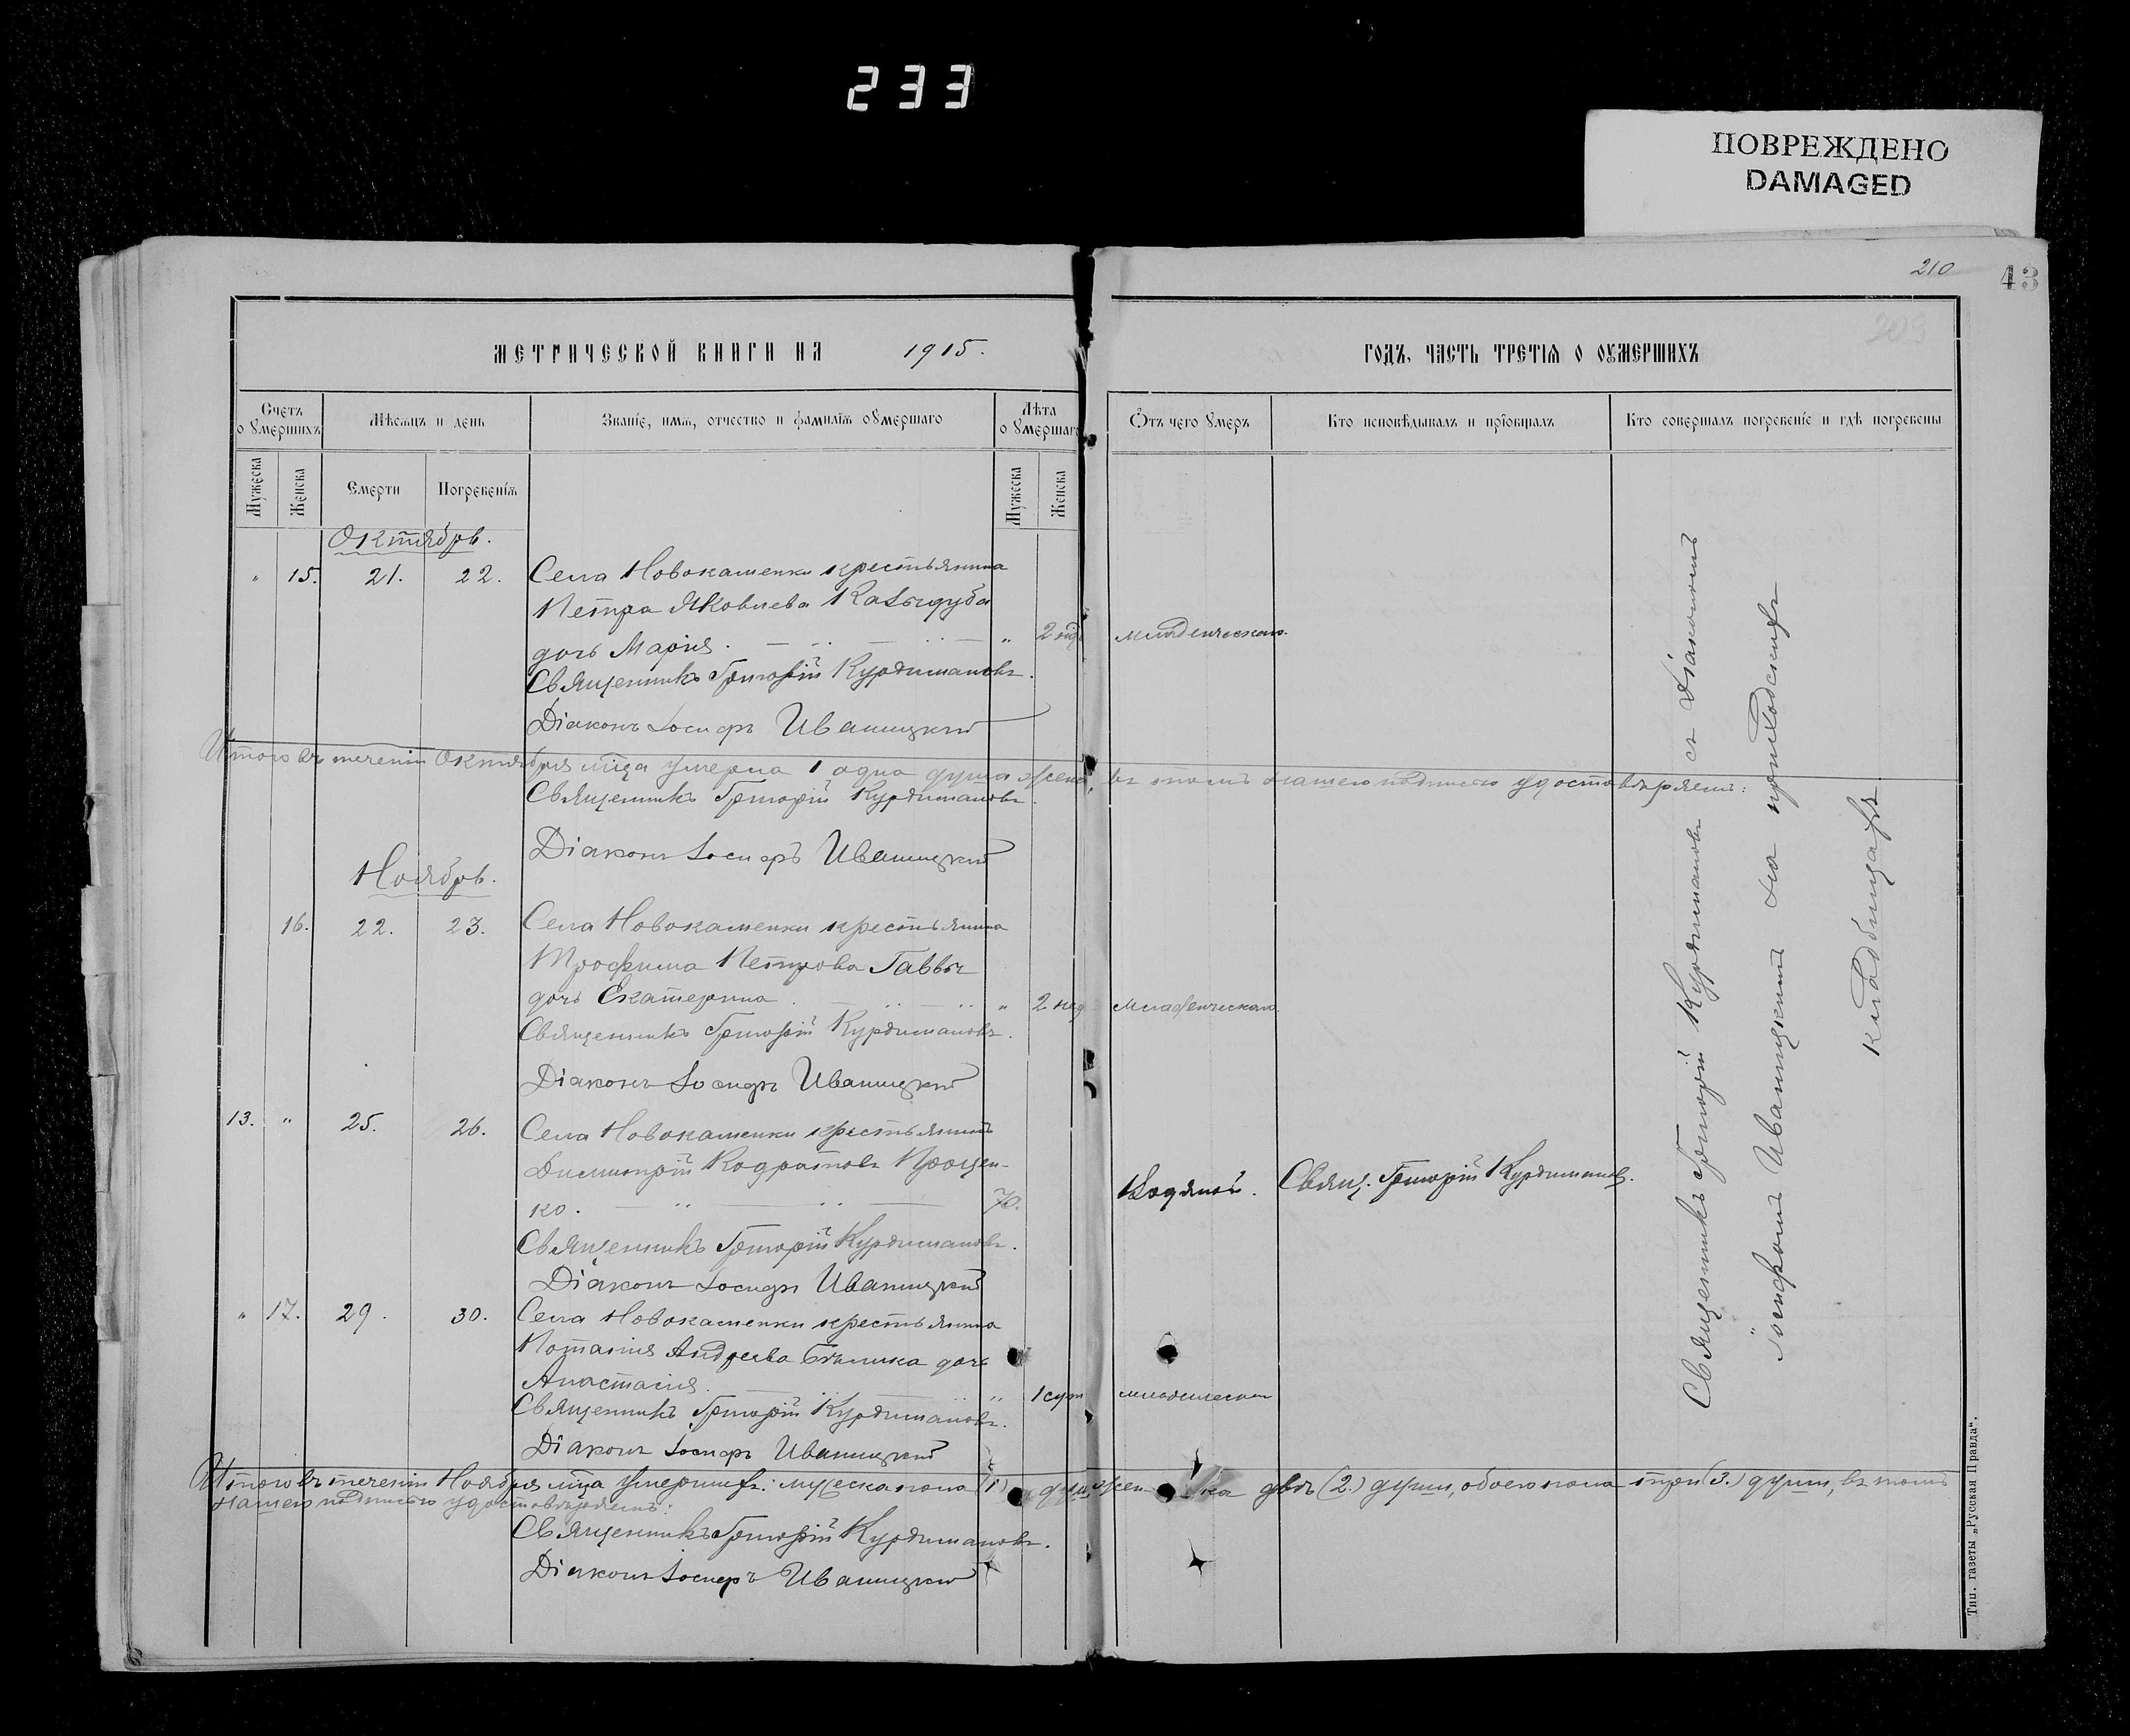 233
ПОВРЕЖДЕНО
DAMAGED
210
43
209
МЕТРИЧЕСКОЙ КНИГИ НА 1915.
ГОДЪ, ЧАСТЬ ТРЕТІЯ О ОУМЕРШИХЪ
Счетъ о умершихъ
Мѣсяцъ и день
Званіе, имя, отчество и фамилія оумершаго
Лѣта о умершаго
Отъ чего умеръ
Кто исповѣдывалъ и пріобщалъ
Кто совершалъ погребеніе и гдѣ погребены
Мужеска
Женска
Смерти
Погребенія
Мужеска
Женска
Октябрь.
" 15. 21. 22. Села Новокаменки крестьянина
Петра Яковлева
дочь Марія. " 2 младенческаго.
Священникъ Григорій Курдимановъ.
Діаконъ Іосифъ Иваницкій
Итого въ теченіи Октября м-ца умерла 1 одна душа женс, въ томъ нашею подписью удостовѣряемъ:
Священникъ Григорій Курдимановъ.
Діаконъ Іосифъ Иваницкій
Ноябрь.
16. 22. 23. Села Новокаменки крестьянина
Трофима Петрова Гаввы
дочь Екатерина. " 2 нед младенческаго.
Священникъ Григорій Курдимановъ.
Діаконъ Іосифъ Иваницкій
13. " 25. 26. Села Новокаменки крестьянинъ
Димитрій Кодратовъ Процен-
ко. 70. Водяной. Свящ. Григорій Курдимановъ.
Священникъ Григорій Курдимановъ.
Діаконъ Іосифъ Иваницкій
" 17. 29. 30. Села Новокаменки крестьянина
Потапія Андреева Бѣлика дочь
Анастасія. " 1 сут младенческаго
Священникъ Григорій Курдимановъ.
Діаконъ Іосифъ Иваницкій
Итого въ теченіи Ноября м-ца умершихъ: мужеска пола (1) душ, жен ка двѣ (2.) души, обоего пола три (3.) души, въ томъ
нашею подписью удостовѣряемъ:
Священникъ Григорій Курдимановъ.
Діаконъ Іосифъ Иваницкій
Священникъ Григорій Курдимановъ съ Діакономъ
Іосифомъ Иваницкимъ на приходскомъ
кладбищѣ
Тип. газеты „Русская Правда".